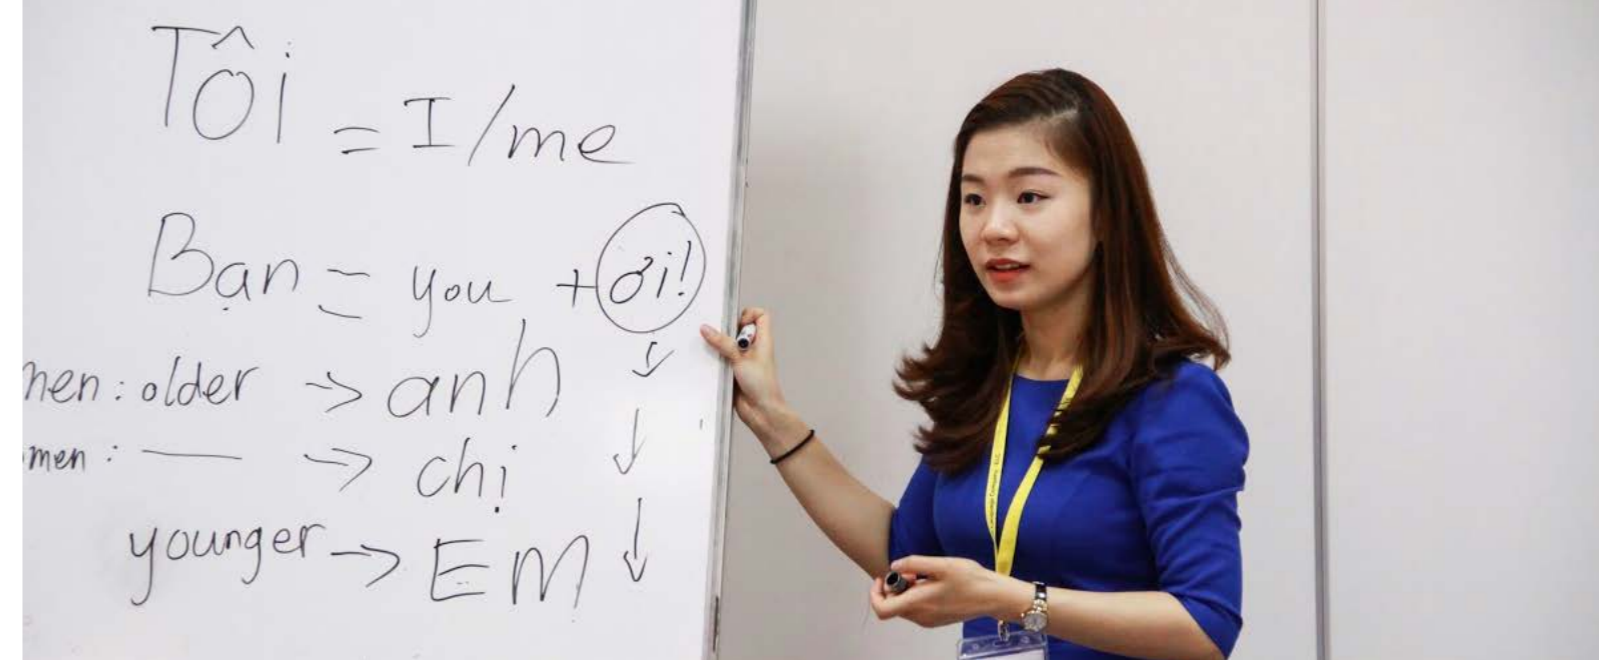 Tôi = I/me
Bạn = you + ơi!
men: older → anh
men: — → chị
younger → Em